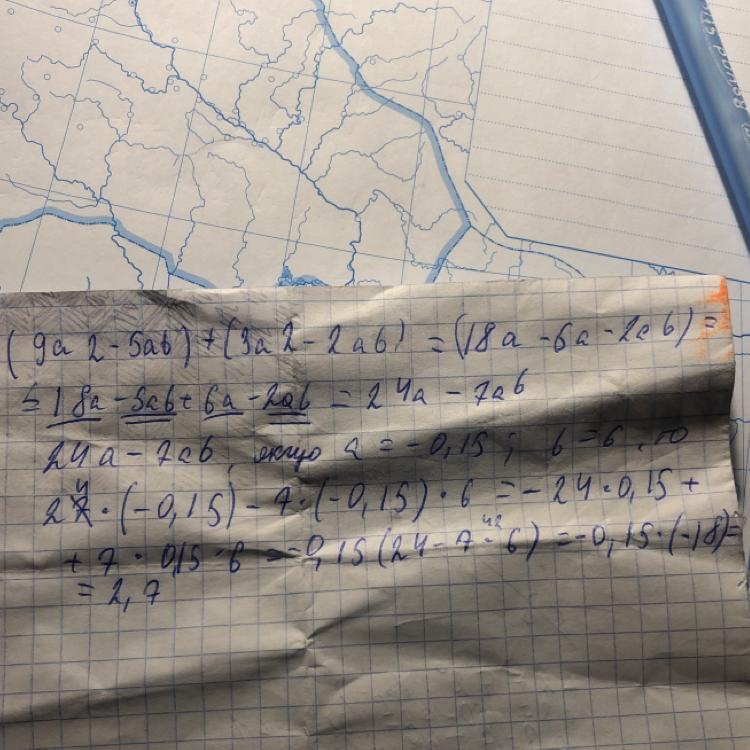 (9a2-5ab)+(3a2-2ab)=(18a-6a-2ab)=
=18a-5ab+6a-2ab=24a-7ab
24a-7ab, якщо a=-0,15; b=6, то
24·(-0,15)-7·(-0,15)·6=-24·0,15+
+7·0,15·6=-0,15(24-7·6)=-0,15·(-18)=
42
=2,7